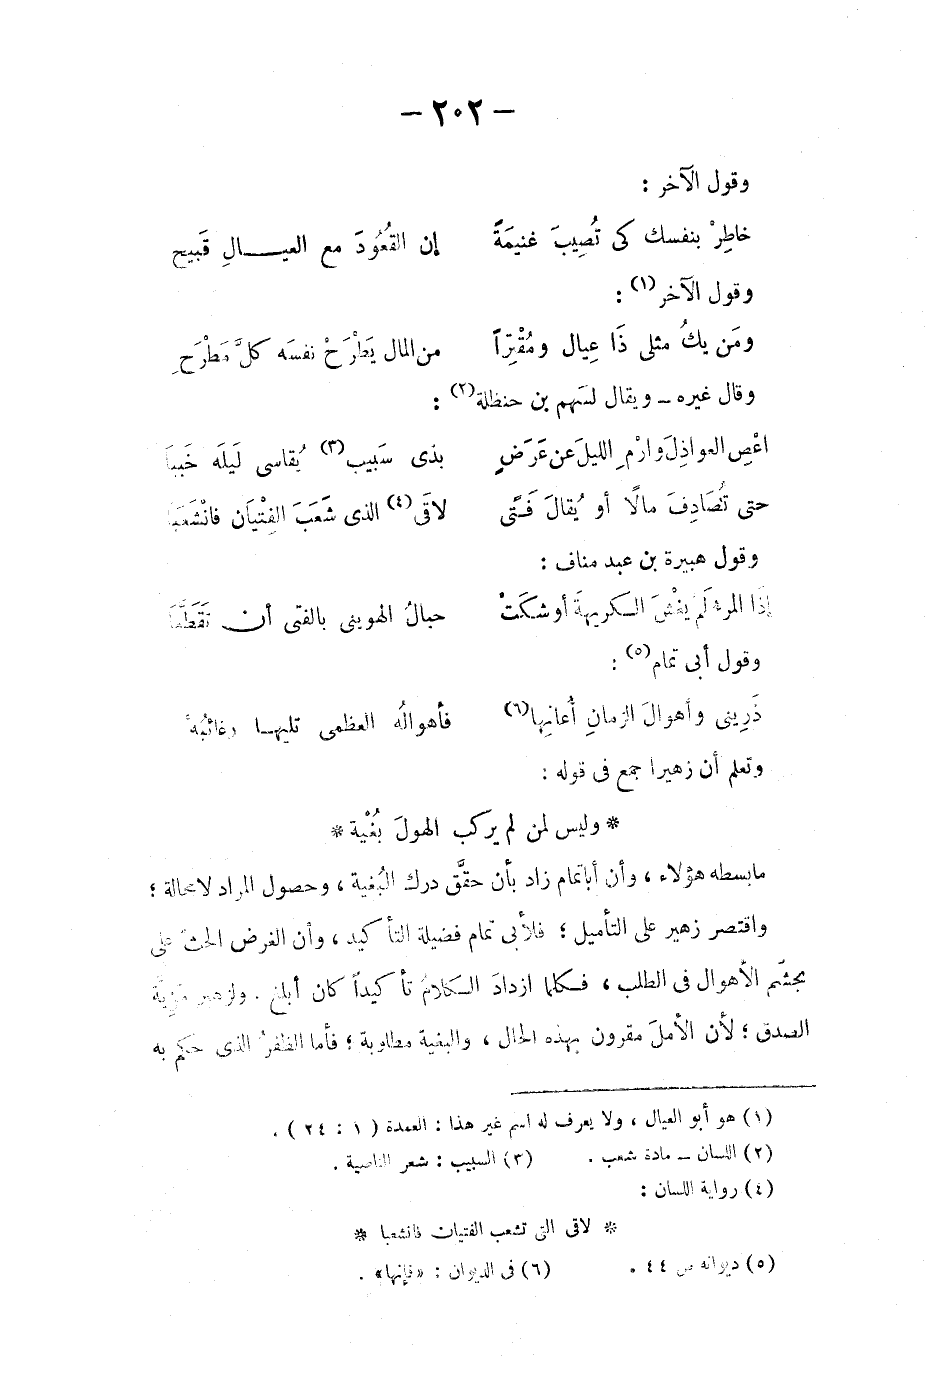 — ٢٠٢ —
وقول الآخر :
خاطِرْ بنفسك كى تُصِيبَ غنيمَةً إن القُعُودَ مع العيـــال قَبيح
وقول الآخر(١) :
ومَن يكُ مثلى ذَا عِيال ومُقْتِرًا من المال يَطْرَحْ نفسَه كلَّ مَطْرَحِ
وقال غيره – ويقال لسَهم بن حنظلة(٢) :
اعْصِ العواذِلَ وارْمِ الليلَ عن عَرَضٍ بذى سَبيب(٣) يُقاسى لَيلَه خَببَا
حتى تُصَادِفَ مالًا أو يُقالَ فَتًى لاقَى(٤) الذى شَعَبَ الفِتْيَان فانْشَعَبَا
وقول هبيرة بن عبد مناف :
إذَا المرء لَم يغْشَ الكريهةَ أوشكَتْ حبالُ الهوينى بالفتى أن تَقَطَّعَا
وقول أبى تمام(٥) :
ذَرِينى وأهوالَ الزمانِ أُعانِها(٦) فأهوالُه العظمى تليهــا رغائبُهُ
وتعلم أن زهيرا جمع فى قوله :
* وليس لمن لم يركب الهولَ بُغْية *
مابسطه هؤلاء ، وأن أباتمام زاد بأن حقَّق درك البُغية ، وحصول المراد لامحالة ؛
واقتصر زهير على التأميل ؛ فلأبى تمام فضيلة التأكيد ، وأن الغرض الحثّ على
تجشّم الأهوال فى الطلب ، فكلما ازدادَ الكلامُ تأكيداً كان أبلغ . ولزهير مزيَّة
الصدق ؛ لأن الأملَ مقرون بهذه الحال ، والبغية مطلوبة ؛ فأما الظفرُ الذى حَكم به
(١) هو أبو العيال ، ولا يعرف له اسم غير هذا : العمدة ( ١ : ٢٤ ) .
(٢) اللسان – مادة شعب . (٣) السبيب : شعر الناصية .
(٤) رواية اللسان :
* لاقى التى تشعب الفتيات فانشعبا *
(٥) ديوانه ص ٤٤ . (٦) فى الديوان : «فإنها» .